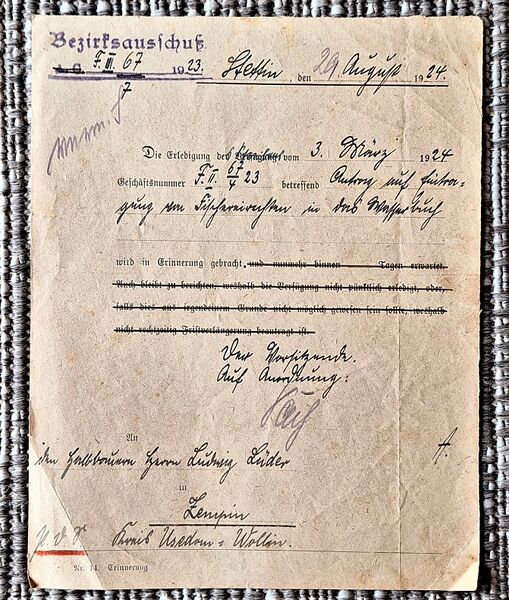 Bezirksausschuß
A. G. F. III. 67 1923.
Stettin, den 29 August 1924.
7
Die Erledigung des Schreibens vom 3. März 1924
Geschäftsnummer F. II. 67/4 23 betreffend Antrag auf Eintra-
gung von Fischereirechten in das Wasserbuch
wird in Erinnerung gebracht, und nunmehr binnen Tagen erwartet.
Auch bleibt zu berichten, weshalb die Verfügung nicht pünktlich erledigt, oder,
falls dies aus irgendeinem Grunde nicht möglich gewesen sein sollte, weshalb
nicht rechtzeitig Fristverlängerung beantragt ist.
Der Vorsitzende.
Auf Anordnung:
An
den Halbbauern Herrn Ludwig Lüder
in
Zempin
Kreis Usedom-Wollin.
Nr. 14. Erinnerung